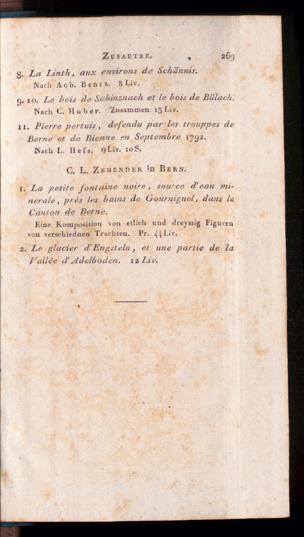 ZUSAETZE. 269
8. La Linth, aux environs de Schännis.
Nach Ach. Bentz. 8 Liv.
9. 10. Le bois de Schinznach et le bois de Bülach.
Nach C. Huber. Zusammen 15 Liv.
11. Pierre pertuis, defendu par les trouppes de
Berne et de Bienne en Septembre 1792.
Nach L. Hefs. 9 Liv. 10 S.
C. L. ZEHENDER in BERN.
1. La petite fontaine noire, source d'eau mi-
nerale, près les bains de Gourniguel, dans le
Canton de Berne.
Eine Komposition von etlich und dreyssig Figuren
von verschiednen Trachten. Pr. 44 Liv.
2. Le glacier d'Engsteln, et une partie de la
Vallée d'Adelboden. 12 Liv.